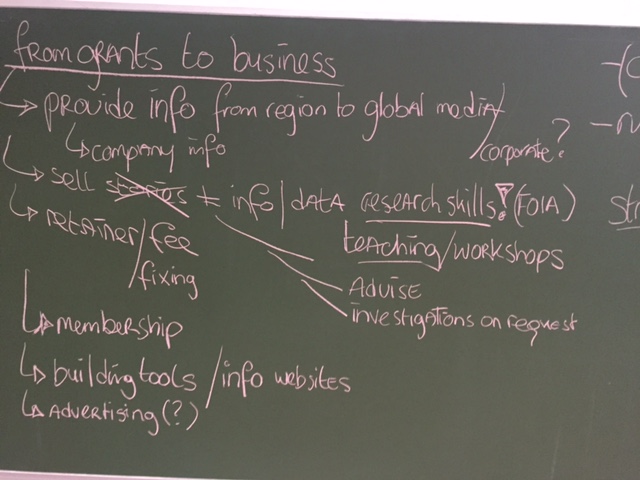 from grants to business
→ provide info from region to global media/corporate?
↳ company info
↳ sell stories ≠ info | DATA research skills! (FOIA)
teaching/workshops
↳ retainer/fee/fixing
Advise
investigations on request
↳ membership
↳ building tools / info websites
↳ Advertising (?)